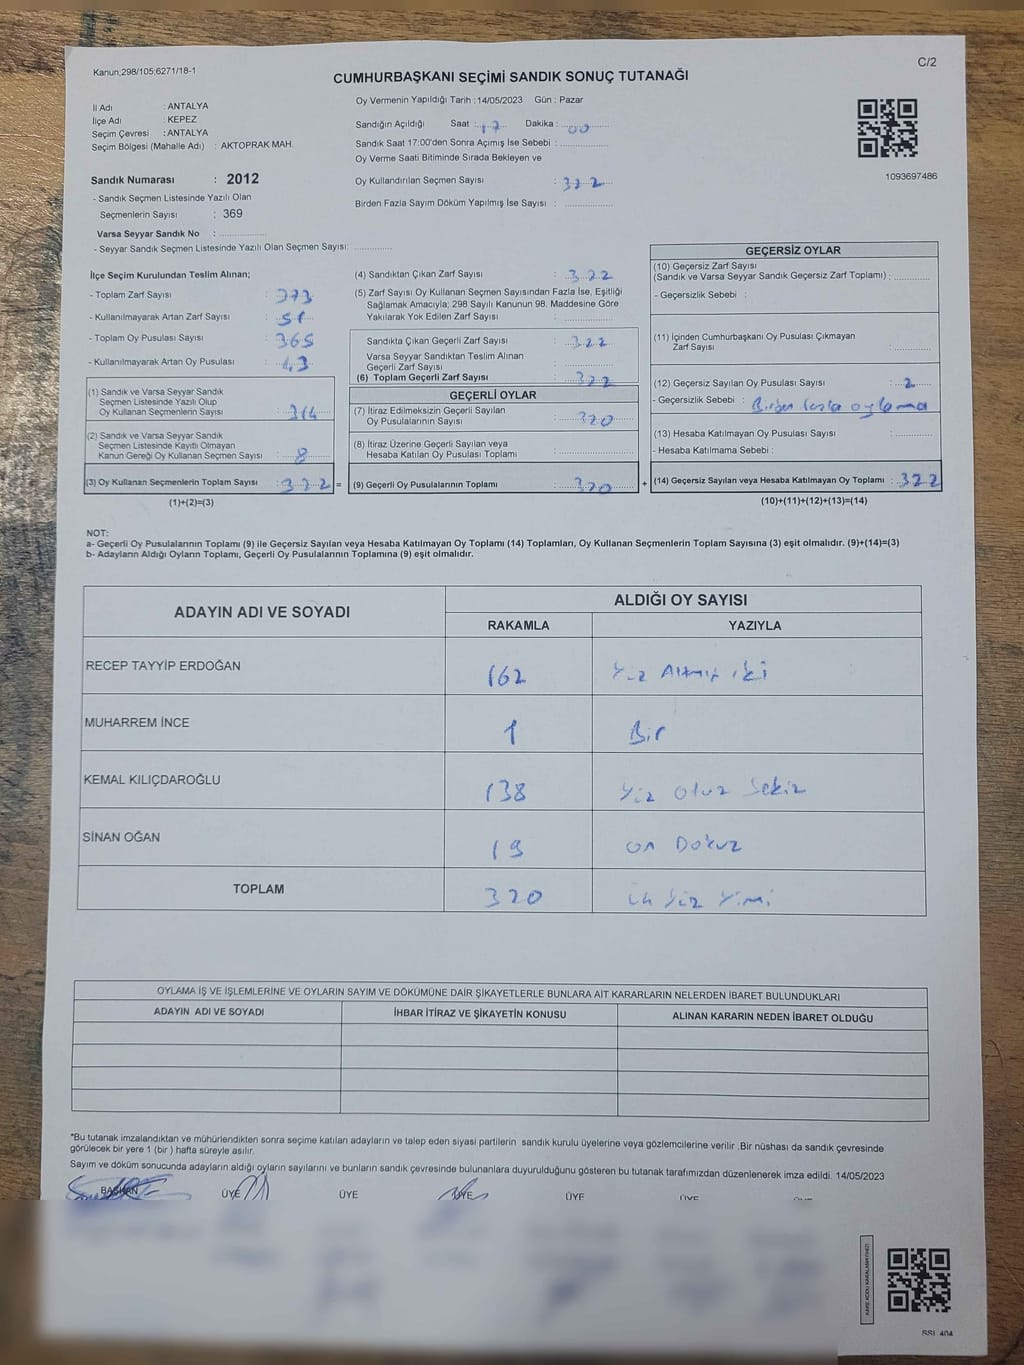 Kanun;298/105;6271/18-1
C/2
CUMHURBAŞKANI SEÇİMİ SANDIK SONUÇ TUTANAĞI
İl Adı : ANTALYA
İlçe Adı : KEPEZ
Seçim Çevresi : ANTALYA
Seçim Bölgesi (Mahalle Adı) : AKTOPRAK MAH.
Oy Vermenin Yapıldığı Tarih : 14/05/2023 Gün : Pazar
Sandığın Açıldığı Saat : 17 Dakika : 00
Sandık Saat 17:00'den Sonra Açımış İse Sebebi :
Oy Verme Saati Bitiminde Sırada Bekleyen ve
Oy Kullandırılan Seçmen Sayısı : 322
Birden Fazla Sayım Döküm Yapılmış İse Sayısı :
1093697486
Sandık Numarası : 2012
- Sandık Seçmen Listesinde Yazılı Olan
Seçmenlerin Sayısı : 369
Varsa Seyyar Sandık No :
- Seyyar Sandık Seçmen Listesinde Yazılı Olan Seçmen Sayısı:
İlçe Seçim Kurulundan Teslim Alınan;
- Toplam Zarf Sayısı : 373
- Kullanılmayarak Artan Zarf Sayısı : 51
- Toplam Oy Pusulası Sayısı : 365
- Kullanılmayarak Artan Oy Pusulası : 43
(1) Sandık ve Varsa Seyyar Sandık
Seçmen Listesinde Yazılı Olup
Oy Kullanan Seçmenlerin Sayısı : 314
(2) Sandık ve Varsa Seyyar Sandık
Seçmen Listesinde Kayıtlı Olmayan
Kanun Gereği Oy Kullanan Seçmen Sayısı : 8
(3) Oy Kullanan Seçmenlerin Toplam Sayısı : 322 =
(1)+(2)=(3)
(4) Sandıktan Çıkan Zarf Sayısı : 322
(5) Zarf Sayısı Oy Kullanan Seçmen Sayısından Fazla İse, Eşitliği
Sağlamak Amacıyla; 298 Sayılı Kanunun 98. Maddesine Göre
Yakılarak Yok Edilen Zarf Sayısı :
Sandıkta Çıkan Geçerli Zarf Sayısı : 322
Varsa Seyyar Sandıktan Teslim Alınan
Geçerli Zarf Sayısı :
(6) Toplam Geçerli Zarf Sayısı : 322
GEÇERLİ OYLAR
(7) İtiraz Edilmeksizin Geçerli Sayılan
Oy Pusulalarının Sayısı : 320
(8) İtiraz Üzerine Geçerli Sayılan veya
Hesaba Katılan Oy Pusulası Toplamı :
(9) Geçerli Oy Pusulalarının Toplamı : 320 +
GEÇERSİZ OYLAR
(10) Geçersiz Zarf Sayısı
(Sandık ve Varsa Seyyar Sandık Geçersiz Zarf Toplamı) :
- Geçersizlik Sebebi :
(11) İçinden Cumhurbaşkanı Oy Pusulası Çıkmayan
Zarf Sayısı :
(12) Geçersiz Sayılan Oy Pusulası Sayısı : 2
- Geçersizlik Sebebi : Birden fazla oylama
(13) Hesaba Katılmayan Oy Pusulası Sayısı :
- Hesaba Katılmama Sebebi :
(14) Geçersiz Sayılan veya Hesaba Katılmayan Oy Toplamı : 322
(10)+(11)+(12)+(13)=(14)
NOT:
a- Geçerli Oy Pusulalarının Toplamı (9) ile Geçersiz Sayılan veya Hesaba Katılmayan Oy Toplamı (14) Toplamları, Oy Kullanan Seçmenlerin Toplam Sayısına (3) eşit olmalıdır. (9)+(14)=(3)
b- Adayların Aldığı Oyların Toplamı, Geçerli Oy Pusulalarının Toplamına (9) eşit olmalıdır.
ADAYIN ADI VE SOYADI
ALDIĞI OY SAYISI
RAKAMLA YAZIYLA
RECEP TAYYİP ERDOĞAN 162 Yüz Altmış iki
MUHARREM İNCE 1 Bir
KEMAL KILIÇDAROĞLU 138 Yüz Otuz Sekiz
SİNAN OĞAN 19 on Dokuz
TOPLAM 320 üç Yüz Yirmi
OYLAMA İŞ VE İŞLEMLERİNE VE OYLARIN SAYIM VE DÖKÜMÜNE DAİR ŞİKAYETLERLE BUNLARA AİT KARARLARIN NELERDEN İBARET BULUNDUKLARI
ADAYIN ADI VE SOYADI İHBAR İTİRAZ VE ŞİKAYETİN KONUSU ALINAN KARARIN NEDEN İBARET OLDUĞU
*Bu tutanak imzalandıktan ve mühürlendikten sonra seçime katılan adayların ve talep eden siyasi partilerin sandık kurulu üyelerine veya gözlemcilerine verilir .Bir nüshası da sandık çevresinde
görülecek bir yere 1 (bir ) hafta süreyle asılır.
Sayım ve döküm sonucunda adayların aldığı oyların sayılarını ve bunların sandık çevresinde bulunanlara duyurulduğunu gösteren bu tutanak tarafımızdan düzenlenerek imza edildi. 14/05/2023
BAŞKAN ÜYE ÜYE ÜYE ÜYE ÜYE ÜYE